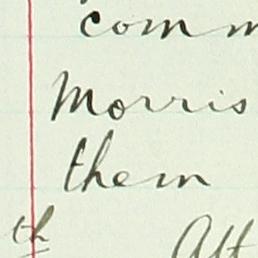 com
Morris
them
th